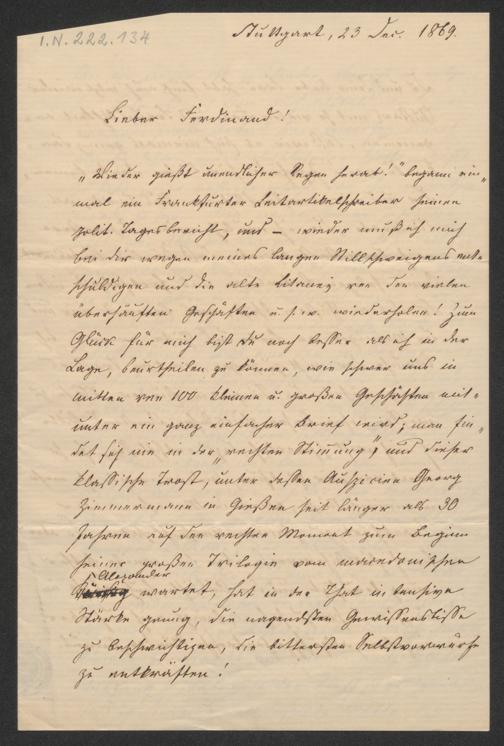 I.N. 222.134
Stuttgart, 23 Dec. 1869.
Lieber Ferdinand!
„Wieder gießt unendlicher Regen herab!" begann ein„
mal ein Frankfurter Leitartikelschreiber seinen
polit. Tagesbericht, und – wieder muß ich mich
bei dir wegen meines langen Stillschweigens ent„
schuldigen und die alte Litanei von den vielen
überhäuften Geschäften u. s. w. wiederholen! Zum
Glück für mich bist du noch besser als ich in der
Lage, beurtheilen zu können, wie schwer uns in
mitten von 100 kleinen u. großen Geschäften mit„
unter ein ganz einfacher Brief wird; man fin„
det sich nie in der „rechten Stimmung", und dieser
klassische Trost, unter dessen Auspicien Georg
Zimmermann in Gießen seit länger als 30
Jahren auf den rechten Moment zum Beginn
seiner großen Trilogie vom macedonischen
Alexander
wartet, hat in der That intensive
Stärke genug, die nagendsten Gewissensbisse
zu beschwichtigen, die bittersten Selbstvorwürfe
zu entkräften!